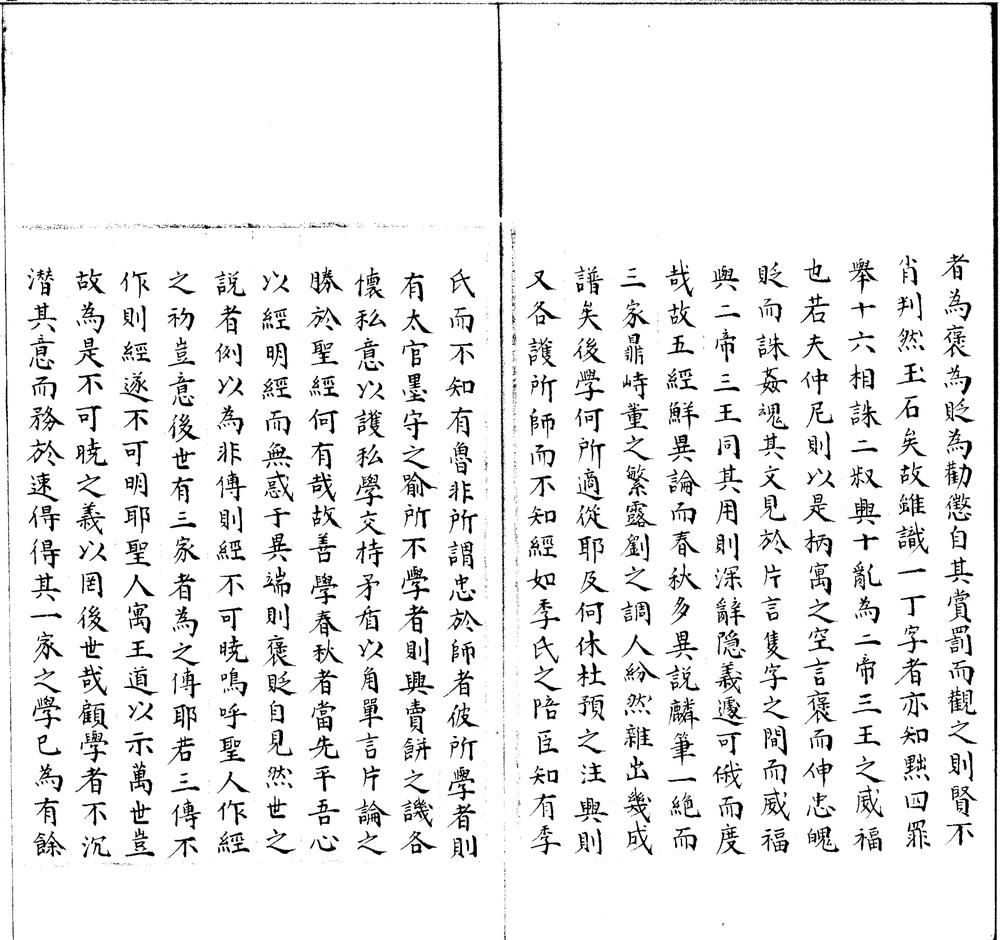 者為褒為貶為勸懲自其賞罰而觀之則賢不
肖判然玉石矣故雖識一丁字者亦知黜四罪
舉十六相誅二叔興十亂為二帝三王之威福
也若夫仲尼則以是柄寓之空言褒而伸忠魄
貶而誅姦魂其文見於片言隻字之間而威福
與二帝三王同其用則深辭隐義遽可俄而度
哉故五經鮮異論而春秋多異説麟筆一絶而
三家鼎峙董之繁露劉之調人紛然雜出幾成
譜矣後學何所適從耶及何休杜預之注興則
又各護所師而不知經如季氏之陪臣知有季
氏而不知有魯非所謂忠於師者彼所學者則
有太官墨守之喻所不學者則興賣餅之譏各
懷私意以護私學交持矛盾以角單言片論之
勝於聖經何有哉故善學春秋者當先平吾心
以經明經而無惑于異端則褒貶自見然世之
説者例以為非傳則經不可曉嗚呼聖人作經
之初豈意後世有三家者為之傳耶若三傳不
作則經遂不可明耶聖人寓王道以示萬世豈
故為是不可曉之義以罔後世哉顧學者不沉
潜其意而務於速得得其一家之學已為有餘